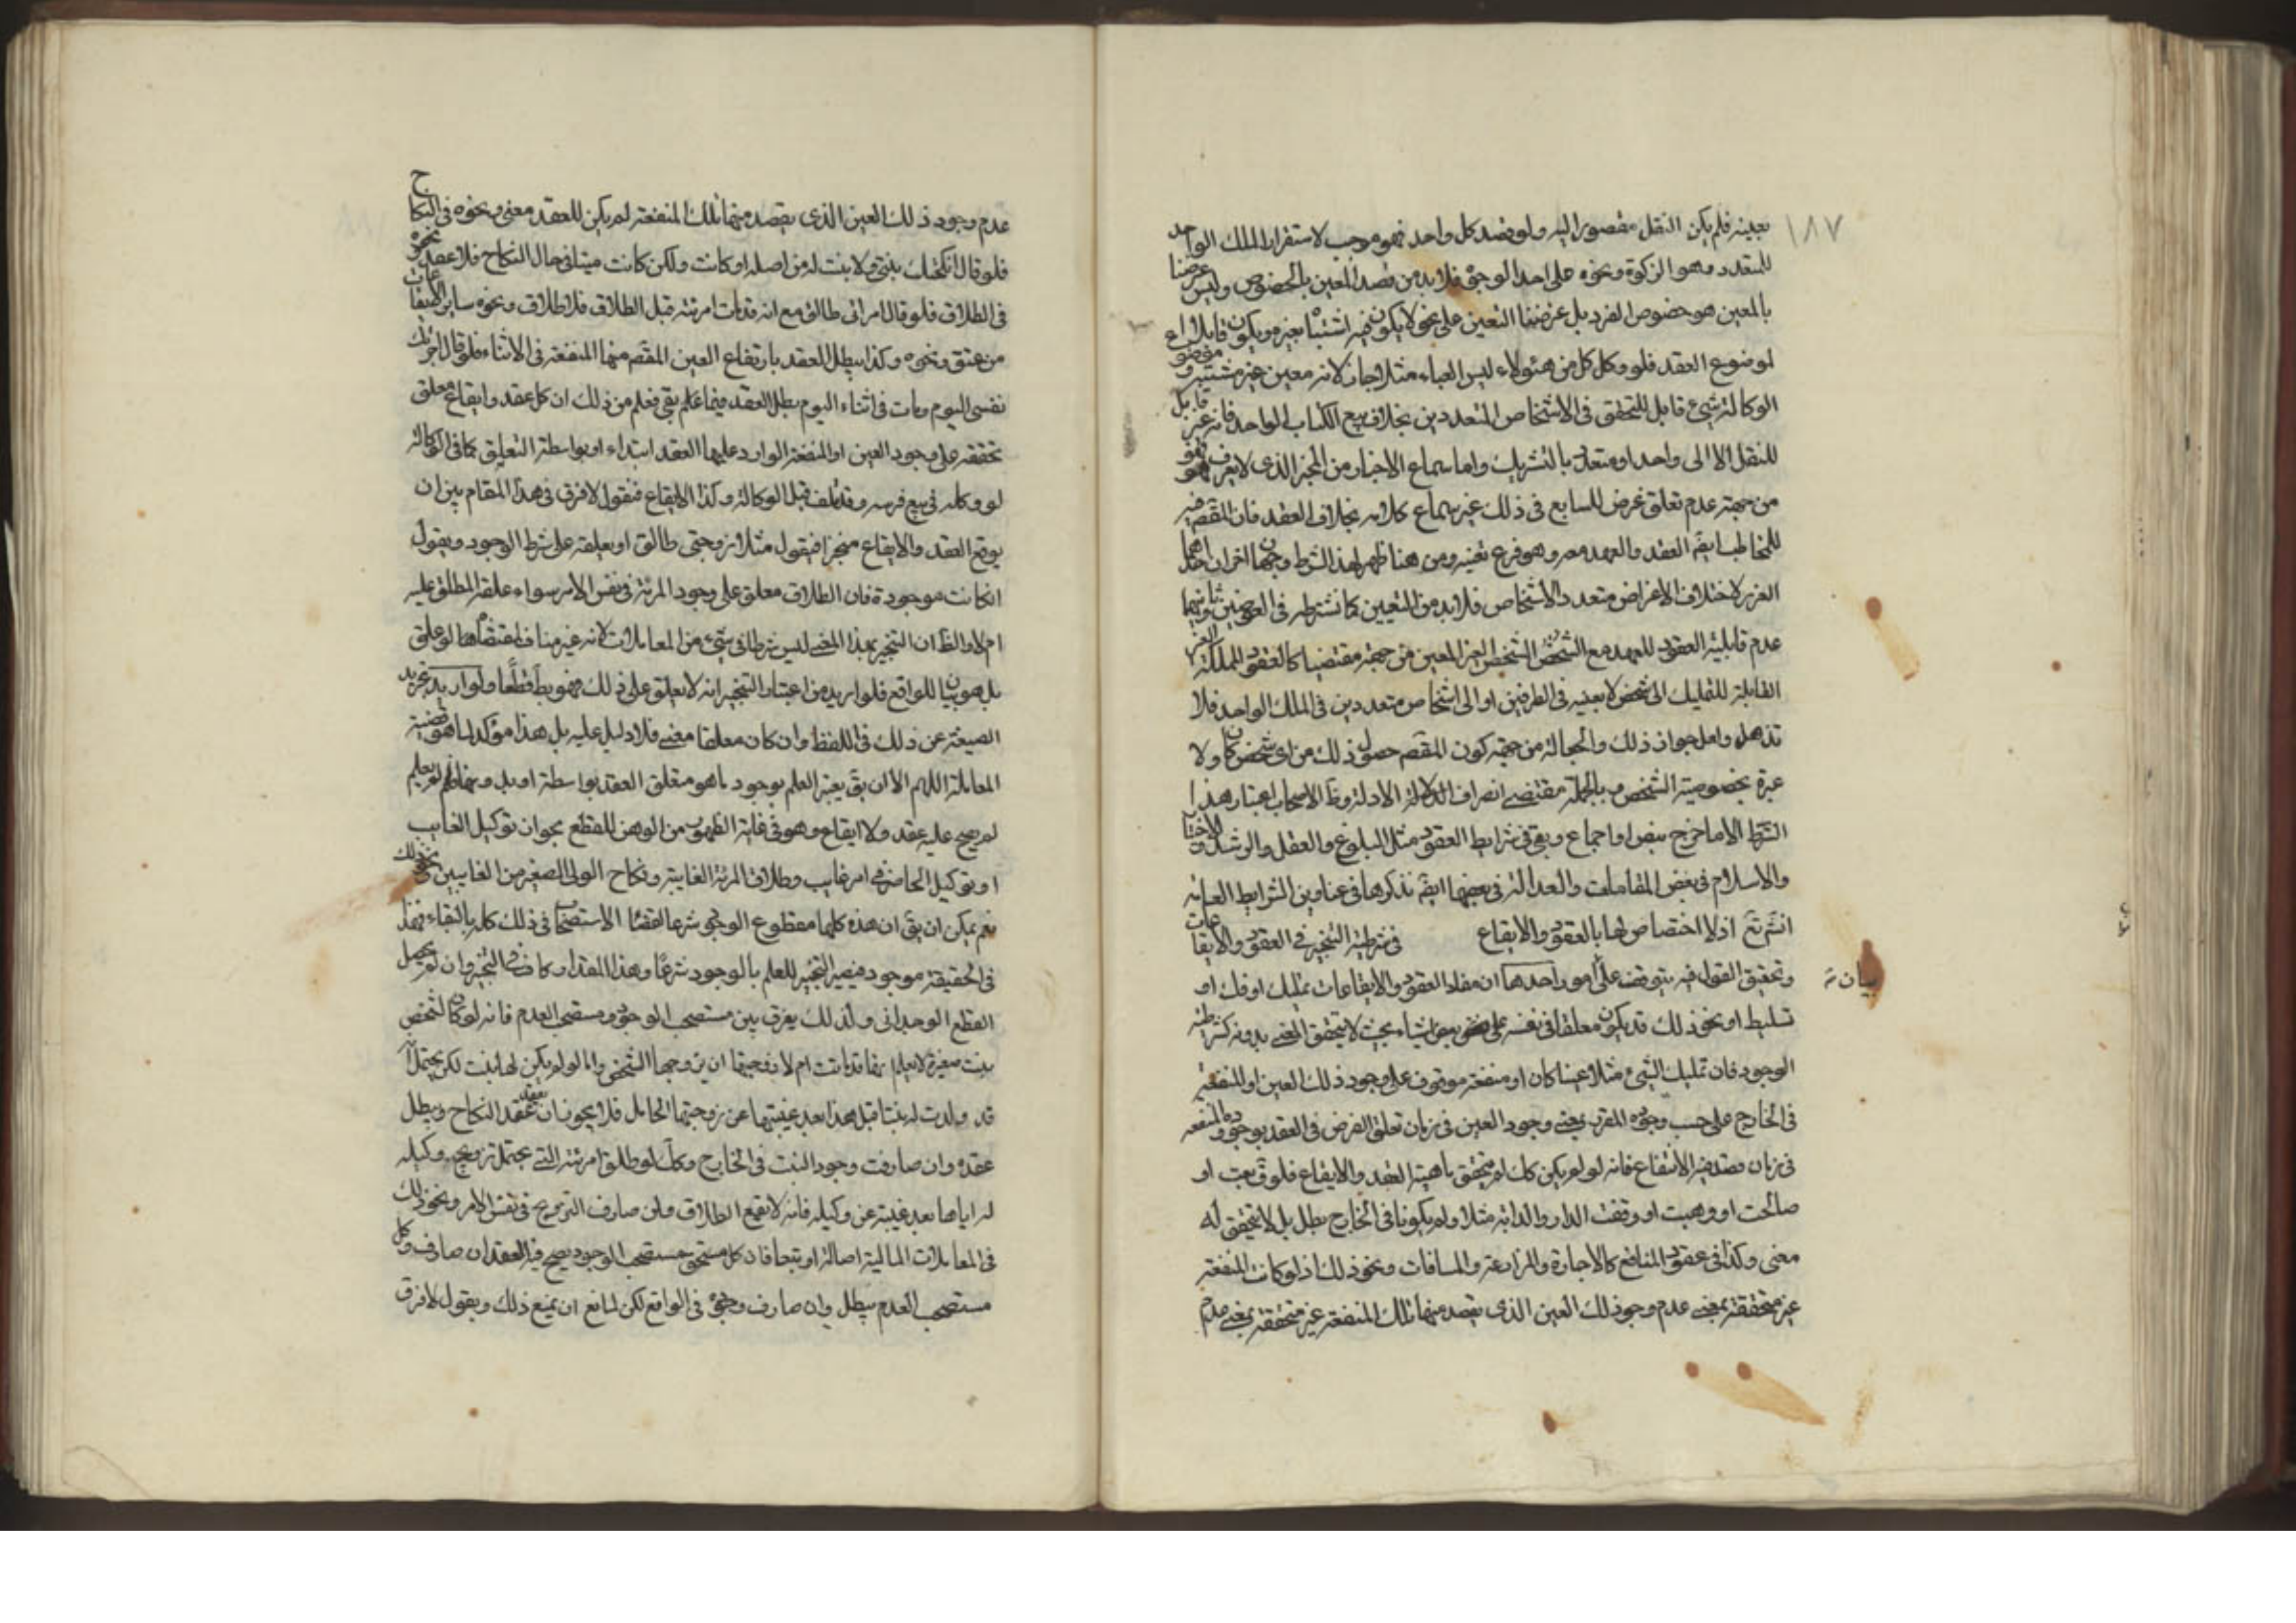 ١٨٧
بعينه فلم يكن النقل مقصورا اليه ولو قصد كل واحد فهو موجب لاستقرار الملك الواحد
للمتعدد وهو الزكوة ونحوه على احد الوجوه فلا بد من قصد المعين بالخصوص وليس غرضنا
بالمعين هو خصوص الفرد بل غرضنا التعين على نحو لا يكون فيه اشتباه بغيره ويكون قابلا
لموضوع العقد فلو وكل كل من هئولاء لبس العباء مثلا جاز لانه معين غير مشتبه وموضوع
الوكالة شيء قابل للتحقق في الاشخاص المتعددين بخلاف بيع الكتاب الواحد فانه غير قابل
للنقل الا الى واحد او متعدد بالتشريك واما سماع الاخبار من المخبر الذي لا يعرف فهو
من جهة عدم تعلق غرض للسامع في ذلك غير سماع كلامه بخلاف العقد فان المقصود فيه
للمخاطب ايقـ العقد والعهد معه وهو فرع تعينه ومن هنا ظهر لهذا الشرط وجهان اخران احدهما
الغرر لاختلاف الاغراض متعدد الاشخاص فلا بد من التعيين كما نشترطه في العوضين وثانيهما
عدم قابلية العقود للعهد مع الشخص الغير المعين من جهة مقتضيها كالعقود المملكة الغير
القابلة للتمليك الى شخص لا بعينه في الطرفين او الى اشخاص متعددين في الملك الواحد فلا
تذهل ولعل جواز ذلك والجعالة من جهة كون المقصـ حصول ذلك من اي شخص كان ولا
عبرة بخصوصية الشخص وبالجملة مقتضى انصراف الادلة وظـ الاصحاب اعتبار هذا
الشرط الا ما خرج بنص او اجماع وبقي في شرايط العقود مثل البلوغ والعقل والرشد والاختيار
والاسلام في بعض المقامات والعدالة في بعضها ايضـ نذكرها في عناوين الشرايط العامه
انشـ تعـ اذ لا اختصاص لها بالعقود والايقاع في شرطية التنجيز في العقود والايقاعات
وتحقيق القول فيه يتوقف على امور احدها ان مفاد العقود والايقاعات تمليك او فك او
تسليط او نحو ذلك قد يكون معلقا في نفسه على بعض اشياء بحيث لا يتحقق المعنى بدونه كشرطية
الوجود فان تمليك الشيء مثلا عينا كان او منفعة موقوف على وجود ذلك العين او المنفعة
في الخارج على حسب وجوده المقرر بمعنى وجود العين في زمان تعلق الغرض في العقد بوجوده والمنفعة
في زمان قصد فيه الانتفاع فانه لو لم يكن كك لم يتحقق ماهية العهد والايقاع فلو قـ بعت او
صالحت او وهبت او وقفت الدار والدابه مثلا ولم يكونا في الخارج بطل بل لا يتحقق له
معنى وكذا في عقود المنافع كالاجارة والمزارعة والمساقات ونحو ذلك اذ لو كانت المنفعة
غير متحققة بمعنى عدم وجود ذلك العين الذي يقصد منها تلك المنفعة غير متحققة بمعنى عدم
عدم وجود ذلك العين الذي يقصد منها تلك المنفعة لم يكن للعقد معنى ونحوه في النكاح
فلو قال انكحتك بنتي ولا بنت له من اصله او كانت ولكن كانت ميتا في حال النكاح فلا عقد ونحوه
في الطلاق فلو قال امراتي طالق مع انه قد مات امرئته قبل الطلاق فلا طلاق ونحوه ساير الايقاعات
من عتق ونحوه وكذا يبطل العقد بارتفاع العين المقصـ منها المنفعة في الاثناء فلو قال اجرتك
نفسي اليوم ومات في اثناء اليوم بطل العقد فيما بقي فعلم من ذلك ان كل عقد وايقاع معلق
تحققه على وجود العين او المنفعة الوارد عليها العقد ابتداء او بواسطة التعليق كما في الوكالة
لو وكله في بيع فرسه وقد تلف قبل الوكالة وكذا الايقاع فنقول لا فرق في هذا المقام بين ان
يوقع العقد والايقاع منجزا فيقول مثلا زوجتي طالق او يعلقه على شرط الوجود ويقول
ان كانت موجودة فان الطلاق معلق على وجود المرئة في نفس الامر سواء علقه المطلق عليه
ام لا والظـ ان التنجيز بهذا المعنى ليس شرطا في شيء من المعاملات لانه غير مناف لمقتضاها لو علق
بل هو بيان للواقع فلو اريد من اعتبار التنجيز انه لا يعلق على ذلك فهو بط قطعا ولو اريد تجريد
الصيغة عن ذلك في اللفظ وان كان معلقا معنى فلا دليل عليه بل هذا مؤكد لما هو قضية
المعاملة اللهم الا ان يقـ يعتبر العلم بوجود ما هو متعلق العقد بواسطة او بدونها فلو لم يعلم
لم يصح عليه عقد ولا ايقاع وهو في غاية الظهور من الوهن للقطع بجواز توكيل الغايب
او توكيل الحاضر في امر غايب وطلاق المرئة الغايبة ونكاح الولي الصغير من الغايبين ونحو ذلك
نعم يمكن ان يقـ ان هذه كلها مقطوع الوجود شرعا لقضاء الاستصحاب في ذلك كله بالبقاء فهذا
في الحقيقة موجود فيصير التنجيز للعلم بالوجود شرعا وهذا المقدار كاف في التنجيز وان لم يحصل
القطع الوجداني ولذلك يفرق بين مستصحب الوجود ومستصحب العدم فانه لو كان لشخص
بنت صغيرة لا يعلم بقائها ماتت ام لا فيجوز ان يزوجها الشخص واما لو لم يكن لها بنت لكن يحتمل انه
قد ولدت له بنتا قبل هذا بعد غيبتها عن زوجتها الحامل فلا يجوز ان يعقد عقد النكاح ويبطل
عقده وان صادفت وجود البنت في الخارج وكك لو طلق امرئته التي يحتمل تزويجه وكيله
له اياها بعد غيبته عن وكيله فانه لا يقع الطلاق وان صادف التزويج في نفس الامر ونحو ذلك
في المعاملات المالية اصالة او تبعا فان كل مستصحب الوجود يصح فيه العقد ان صادف وكل
مستصحب العدم يبطل وان صادف وجوده في الواقع لكن لمانع ان يمنع ذلك ويقول لا فرق